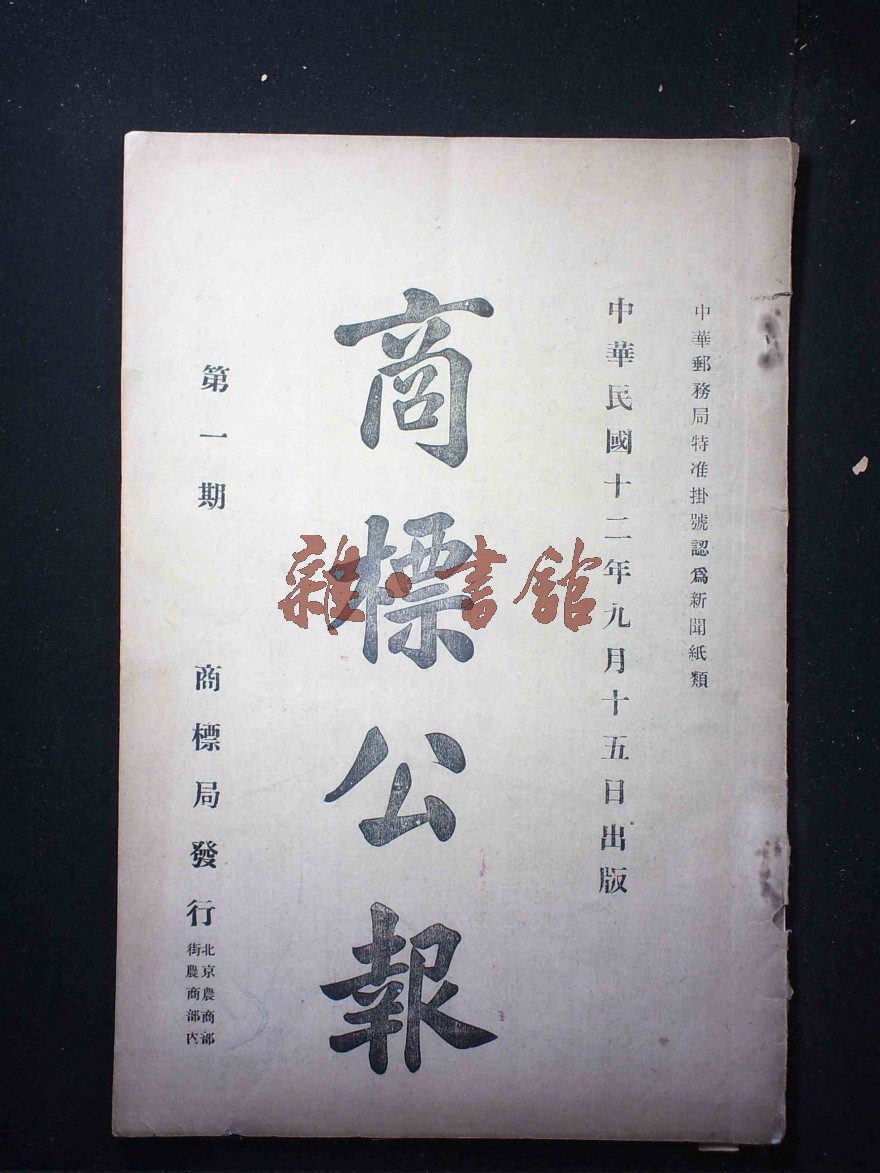 中華郵務局特准掛號認爲新聞紙類
中華民國十二年九月十五日出版
商標公報
第一期
商標局發行
北京農商部
街農商部內
雜·書館